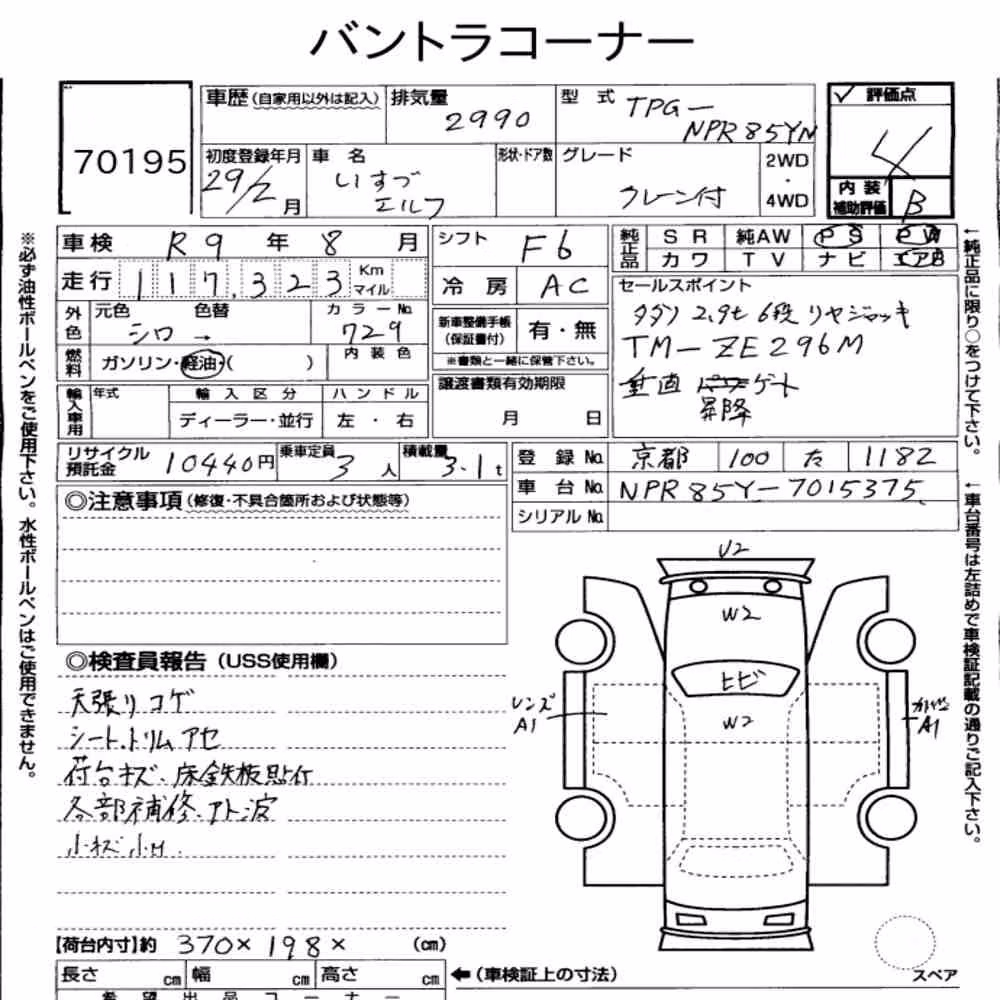 バントラコーナー
70195
車歴 (自家用以外は記入) 排気量 2990 型式 TPG- NPR85YN
評価点 4
初度登録年月 29/2月 車名 いすゞ エルフ 形状・ドア数 グレード クレーン付 2WD・4WD
内装補助評価 B
車検 R9年8月 シフト F6 純正品 SR 純AW PS PW
カワ TV ナビ エアB
走行 117,323 Km マイル 冷房 AC
セールスポイント
タダノ 2.9t 6段 リヤジャッキ
TM-ZE296M
垂直 パワーゲート
昇降
外色 元色 シロ 色替 → カラーNo. 729
新車整備手帳(保証書付) 有・無
※書類と一緒に保管下さい。
燃料 ガソリン・軽油・( ) 内装色
譲渡書類有効期限 月 日
輸入車用 年式 輸入区分 ディーラー・並行 ハンドル 左・右
リサイクル預託金 10440円 乗車定員 3人 積載量 3.1t
登録No. 京都 100 た 1182
車台No. NPR85Y-7015375
シリアルNo.
◎注意事項 (修復・不具合箇所および状態等)
◎検査員報告 (USS使用欄)
天張りコゲ
シート.トリムアセ
荷台キズ、床鉄板貼付
各部補修.アト波
小キズ小凹.
U2
W2
ヒビ
W2
レンズ A1
A1
【荷台内寸】約 370×198× (cm)
長さ cm 幅 cm 高さ cm ←(車検証上の寸法)
希望出品コーナー
スペア
※必ず油性ボールペンをご使用下さい。水性ボールペンはご使用できません。
←純正品に限り○をつけて下さい。
←車台番号は左詰めで車検証記載の通りご記入下さい。